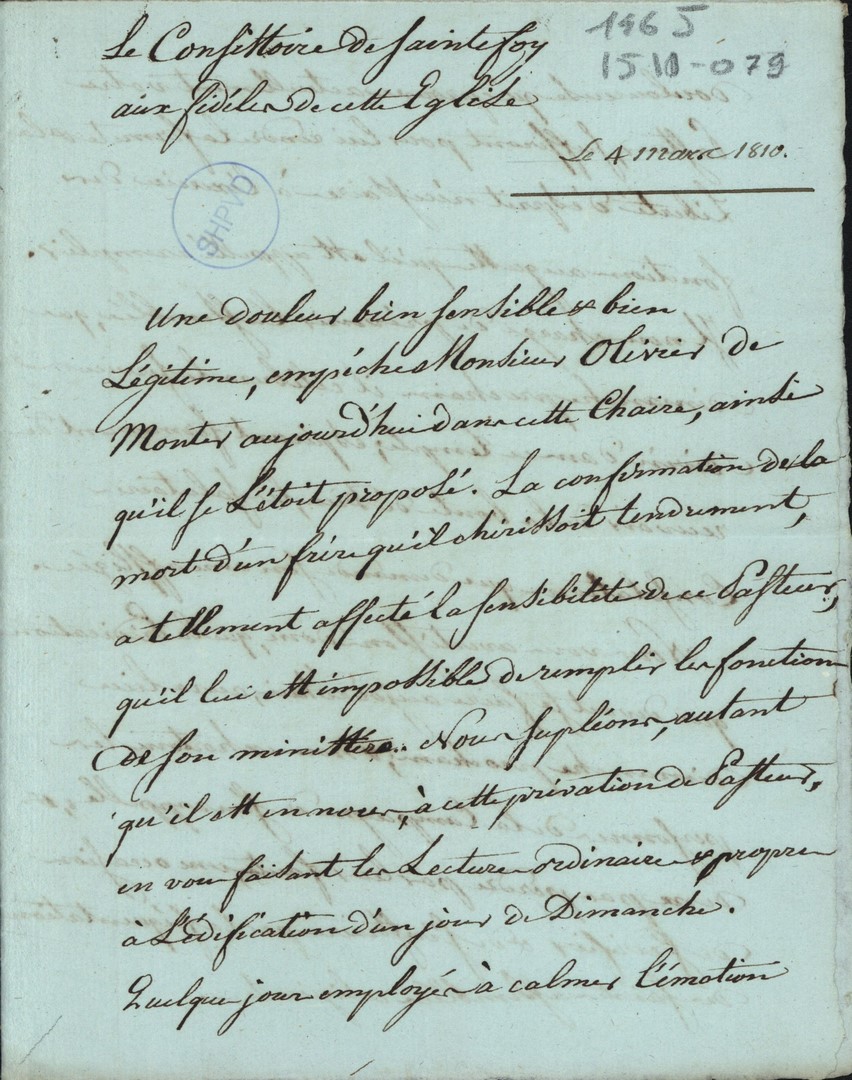 1465
1510-079
Le Consistoire de Sainte foy
aux fidéles de cette Eglise
Le 4 mars 1810.
SHPVD
Une douleur bien sensible & bien
Légitime, empéche Monsieur Olivier de
Monter aujourd'hui dans cette Chaire, ainsi
qu'il se L'étoit proposé. La confirmation de la
mort d'un frére qu'il chérissoit tendrement,
a tellement affecté la sensibilité de ce Pasteur,
qu'il lui est impossible de remplir les fonctions
de son ministére. Nous supléons, autant
qu'il est en nous, à cette privation de Pasteur,
en vous faisant les Lectures ordinaires & propres
à L'édification d'un jour de Dimanche.
Quelques jours employés à calmer l'émotion